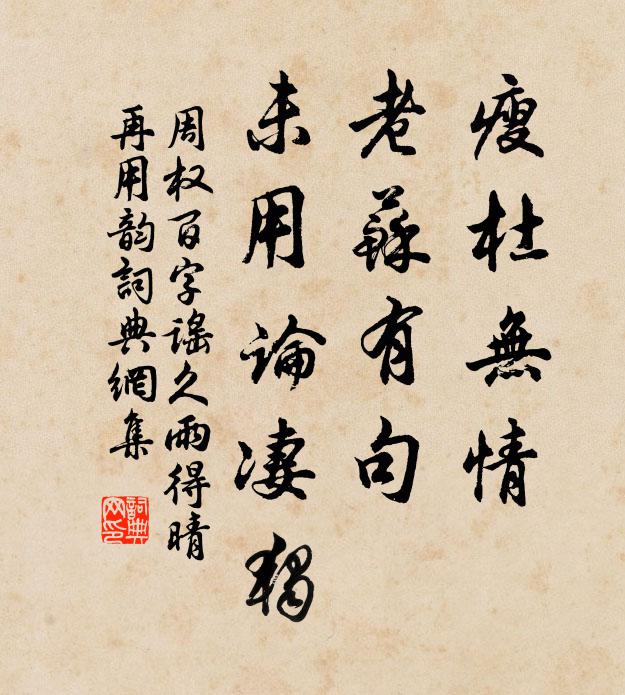 瘦杜無情
老蘇有句
未用論淒獨
周权百字謠久雨得晴
再用韵詞典網集
詞典
网印